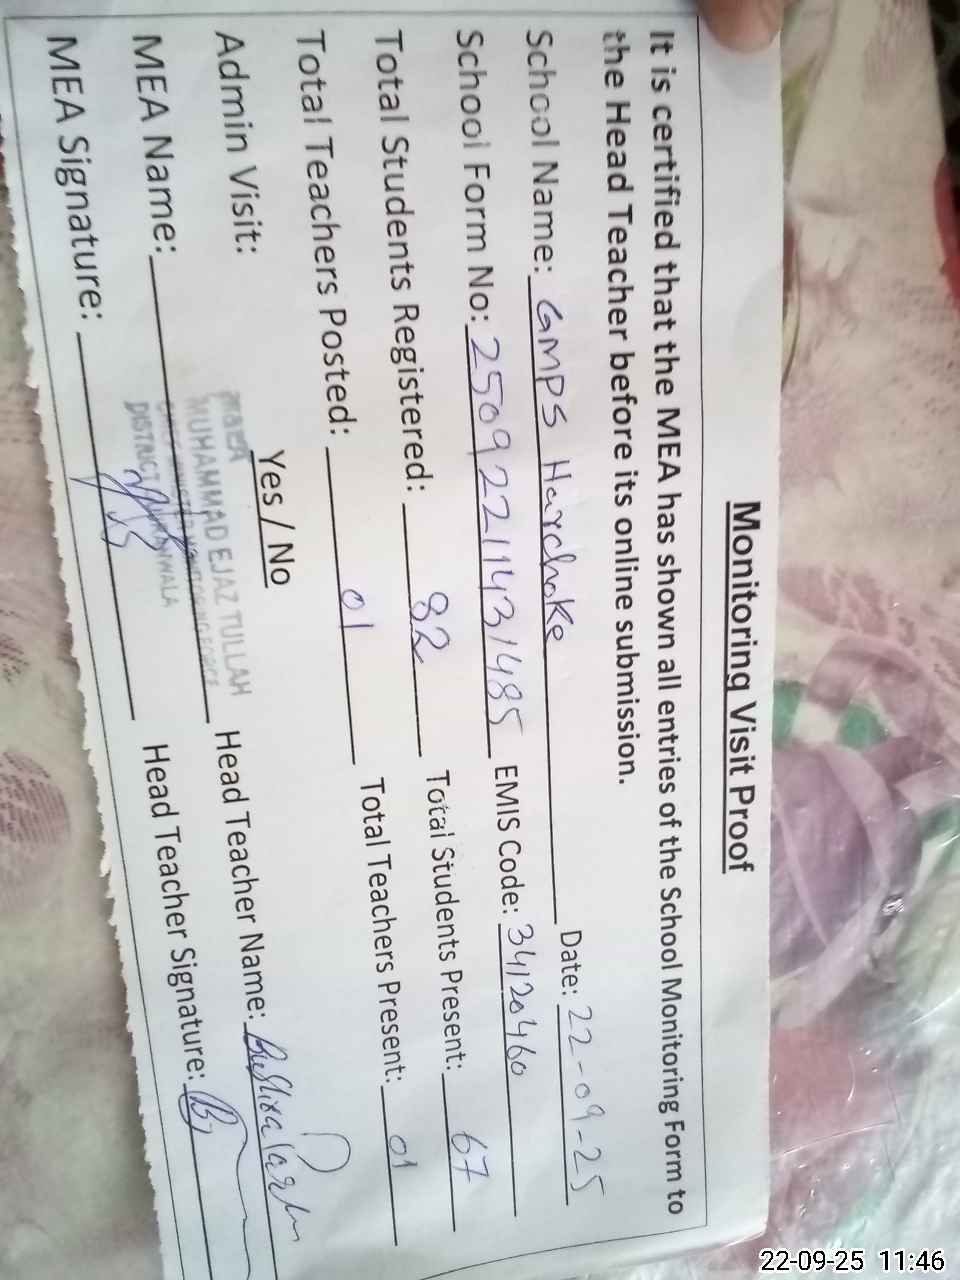 Monitoring Visit Proof
It is certified that the MEA has shown all entries of the School Monitoring Form to
the Head Teacher before its online submission.
School Name: GMPS Harchoke Date: 22-09-25
School Form No: 25092211431485 EMIS Code: 34120460
Total Students Registered: 82 Total Students Present: 67
Total Teachers Posted: 01 Total Teachers Present: 01
Admin Visit: Yes / No
MUHAMMAD EJAZ TULLAH
MEA Name: Head Teacher Name: Bushra
DISTRICT
MEA Signature: Head Teacher Signature:
22-09-25 11:46